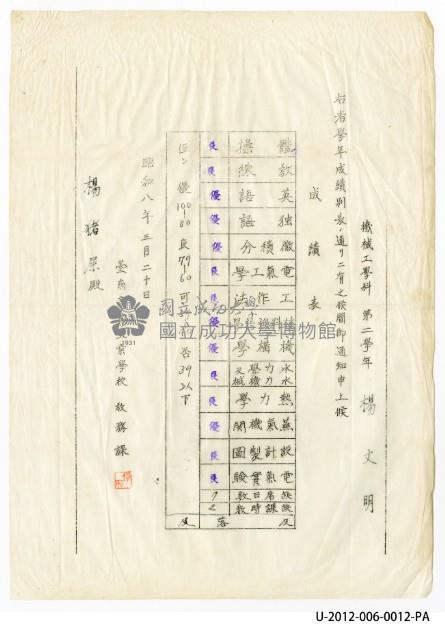 機械工學科 第二學年 楊文明
右者學年成績別表ノ通リニ有之候間御通知申上候
成績表
體操 良
教練 良
英語 優
独語 優
微積分 優
電氣工學 良
工作法
機構學 優
水力學及水力機械 良
熱力學 良
蒸氣機關 優
設計製圖 良
電氣實驗 良
缺席日數 7
缺課時數 2
及落 及
但シ 優100-80 良79-60 可 否39以下
昭和八年三月二十日
臺南 業學校 教務課
楊猪屎殿
國立成功大學
國立成功大學博物館
1931
U-2012-006-0012-PA